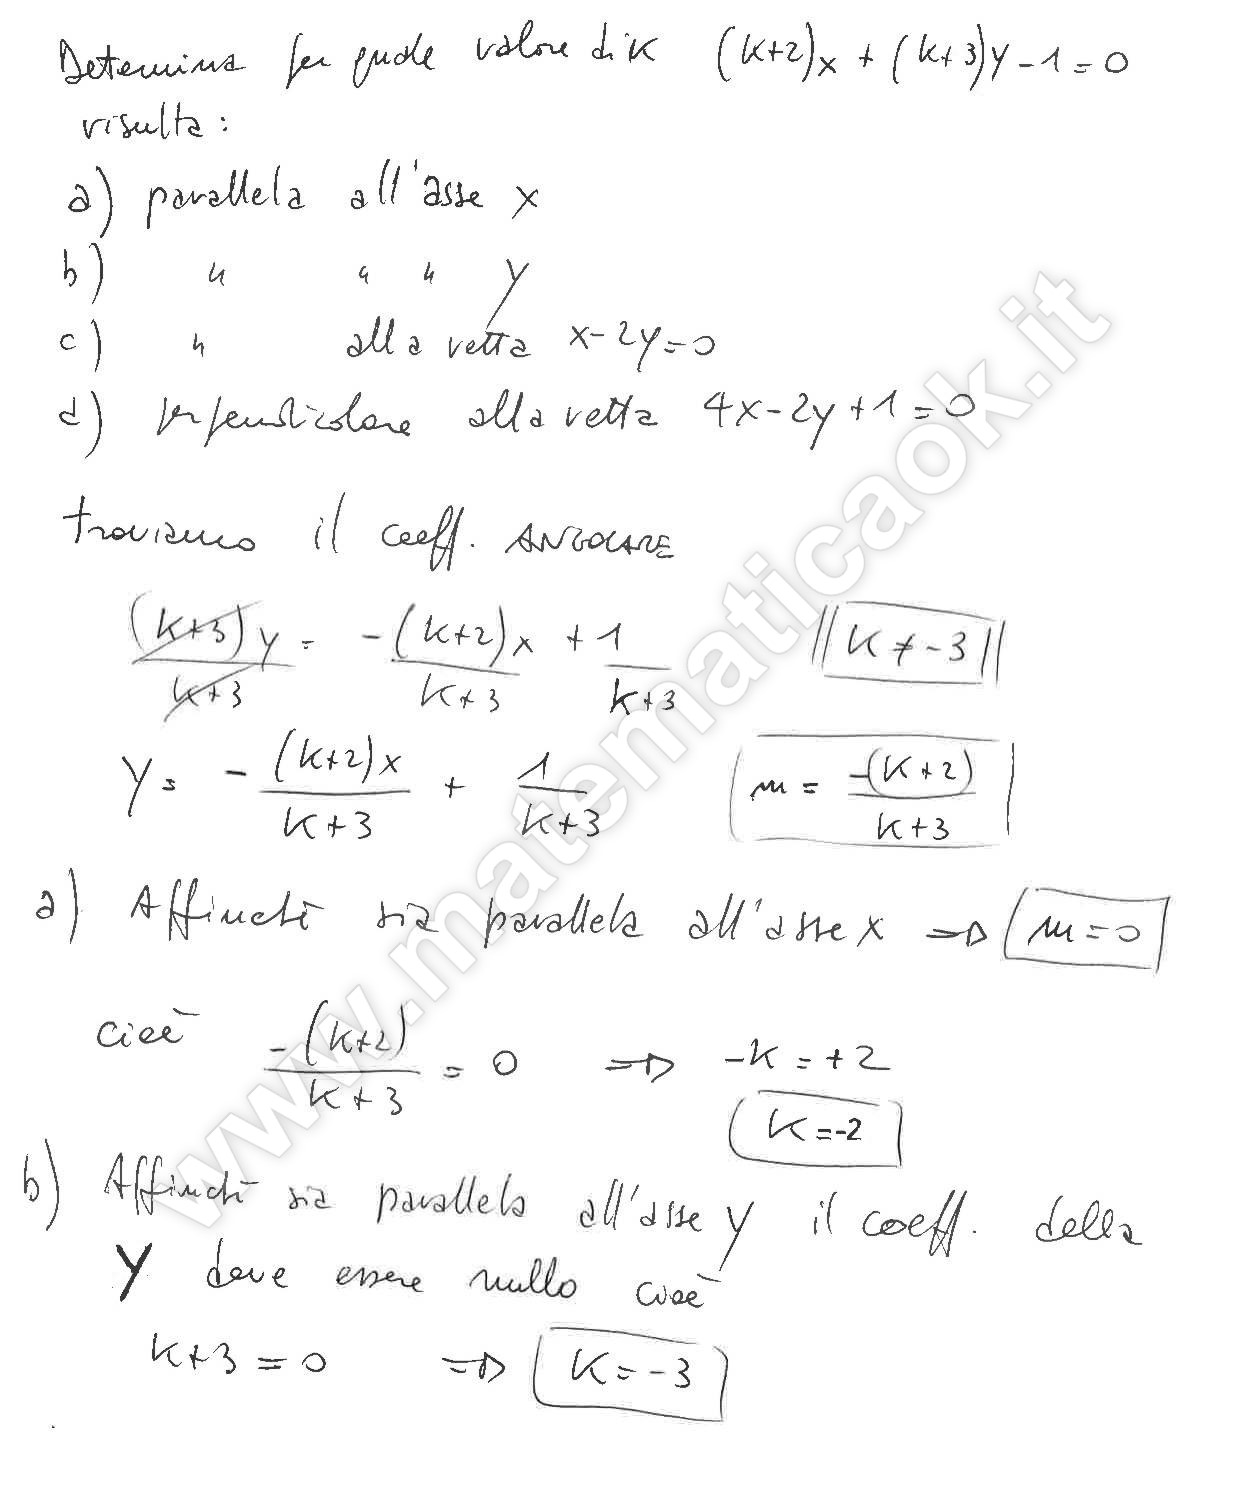 Determina per quale valore di K (K+2)x + (K+3)y - 1 = 0
risulta:
a) parallela all'asse x
b) " " " y
c) " alla retta x-2y=0
d) perpendicolare alla retta 4x-2y+1=0
troviamo il coeff. ANGOLARE
(K+3)y/(K+3) = -(K+2)x/(K+3) + 1/(K+3) || K ≠ -3 ||
y = - (K+2)x/(K+3) + 1/(K+3) m = -(K+2)/(K+3)
a) Affinchè sia parallela all'asse x => m=0
cioè -(K+2)/(K+3) = 0 => -K = +2
K=-2
b) Affinchè sia parallela all'asse y il coeff. della
y deve essere nullo cioè
K+3=0 => K=-3
www.matematicaok.it